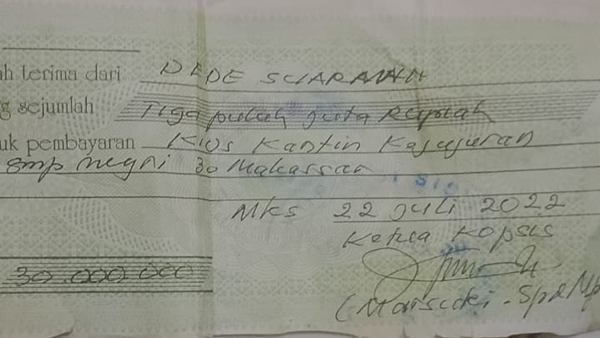 ah terima dari DEDE SUARMAN
g sejumlah Tiga puluh juta Rupiah
uk pembayaran Kios Kantin Kejujuran
smp negri 30 Makassar
Mks 22 juli 2022
Ketua Kopsis
30.000.000
(Marsuki. Spd